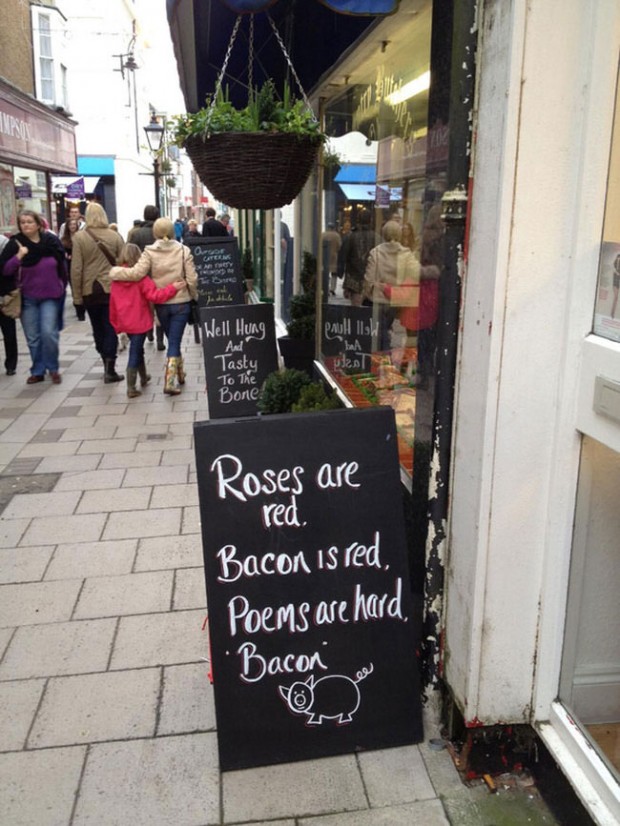 Roses are
red.
Bacon is red.
Poems are hard.
Bacon
Well Hung
And
Tasty
To The
Bone
Outside
Catering